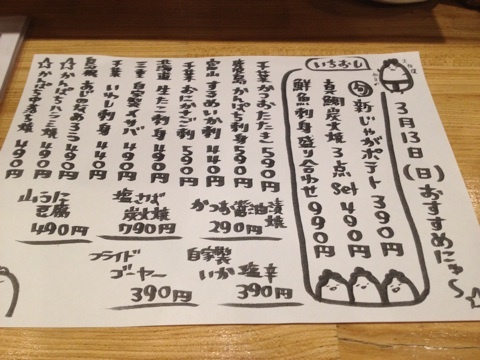 3月13日(日)おすすめにゅ〜
いちおし
旬 新じゃがポテト 390円
真鯛炭火焼3点set 490円
鮮魚刺身盛り合わせ 990円
千葉 かつおたたき 590円
鹿児島 かんぱち刺身 590円
富山 するめいか刺 440円
千葉 おにかさご刺 540円
北海道 生たこ刺身 490円
三重 自家製〆サバ 490円
千葉 いわし刺身 440円
自家製 あじのなめろう 490円
かんぱちハラミ焼 490円
かんぱち中落ち焼 490円
かつお醤油漬焼
290円
塩さば炭火焼
790円
山うに豆腐
490円
自家製
いか塩辛
390円
フライド
ゴーヤー
390円